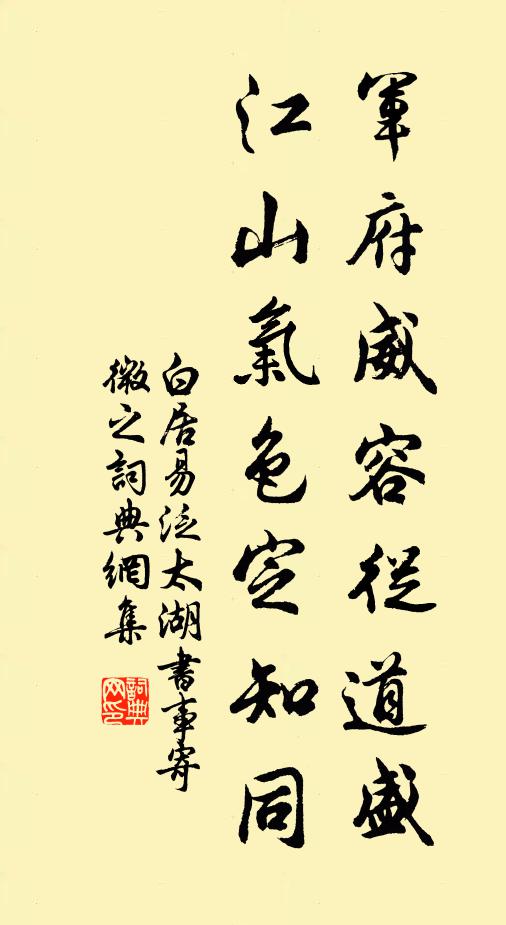 軍府威容從道盛
江山氣色定知同
白居易泛太湖書事寄
微之詞典網集
詞典
网印